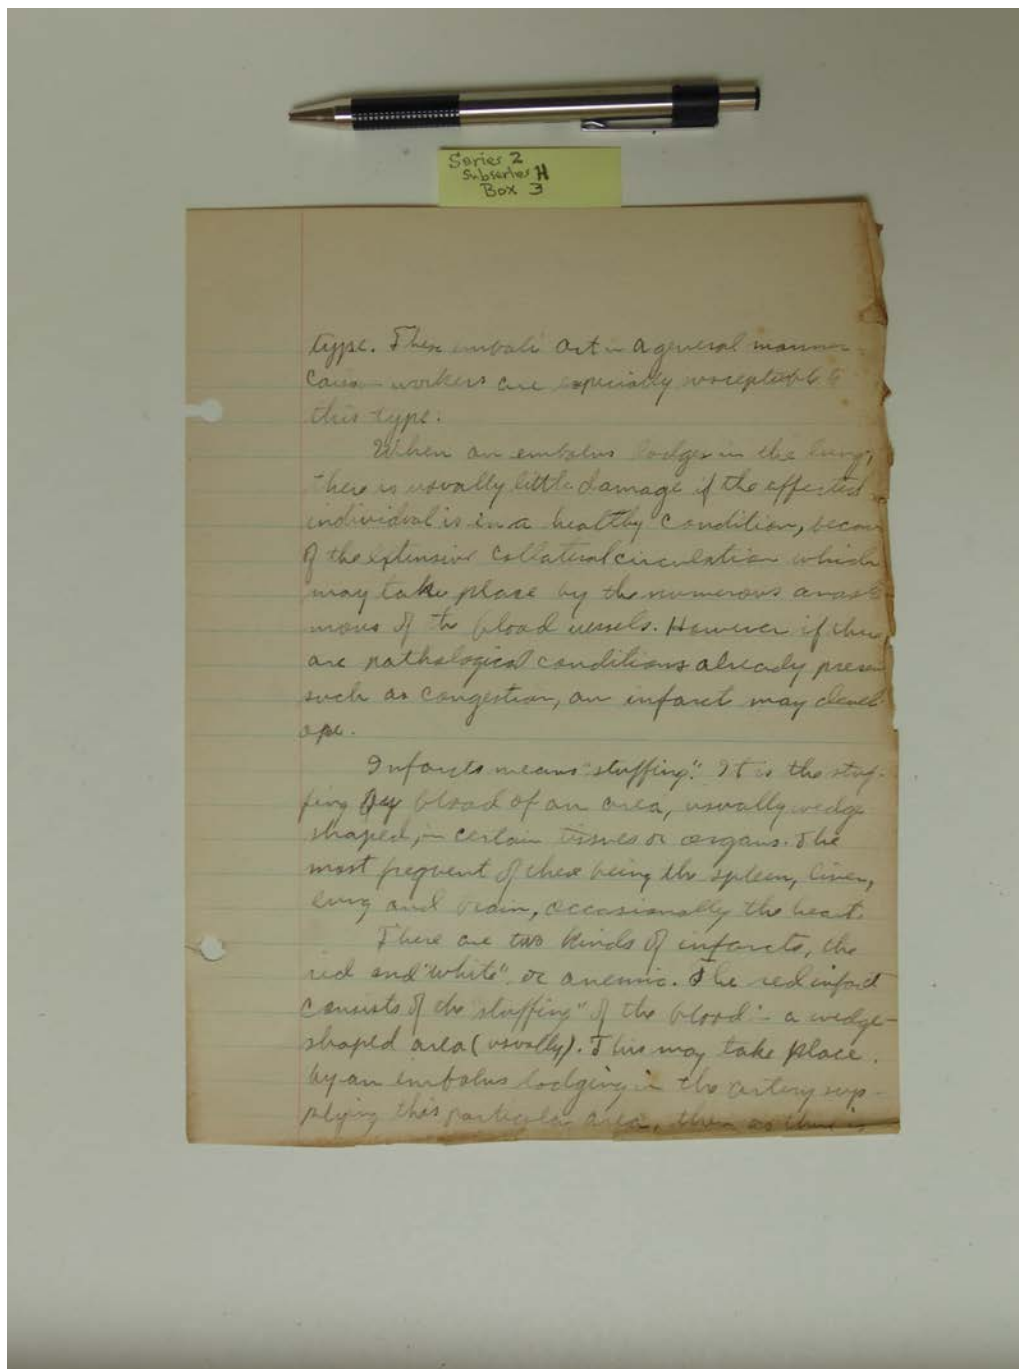 Series 2
Subseries H
Box 3
type. These emboli act in a general manner
workers are especially susceptible to
this type.
When an embolus lodges in the lung,
there is usually little damage if the affected
individual is in a healthy condition, becau
of the extensive collateral circulation which
may take place by the numerous anasto
moses of the blood vessels. However if there
are pathological conditions already presen
such as congestion, an infarct may devel-
ope.
Infarcts means "stuffing". It is the stuf-
fing by blood of an area, usually wedge
shaped, in certain tissues or organs. The
most frequent of these being the spleen, liver,
lung and brain, occasionally the heart.
There are two kinds of infarcts, the
red and "white" or anemic. The red infarct
consists of the "stuffing" of the blood in a wedge-
shaped area (usually). This may take place
by an embolus lodging in the artery sup-
plying this particular area, then as there is